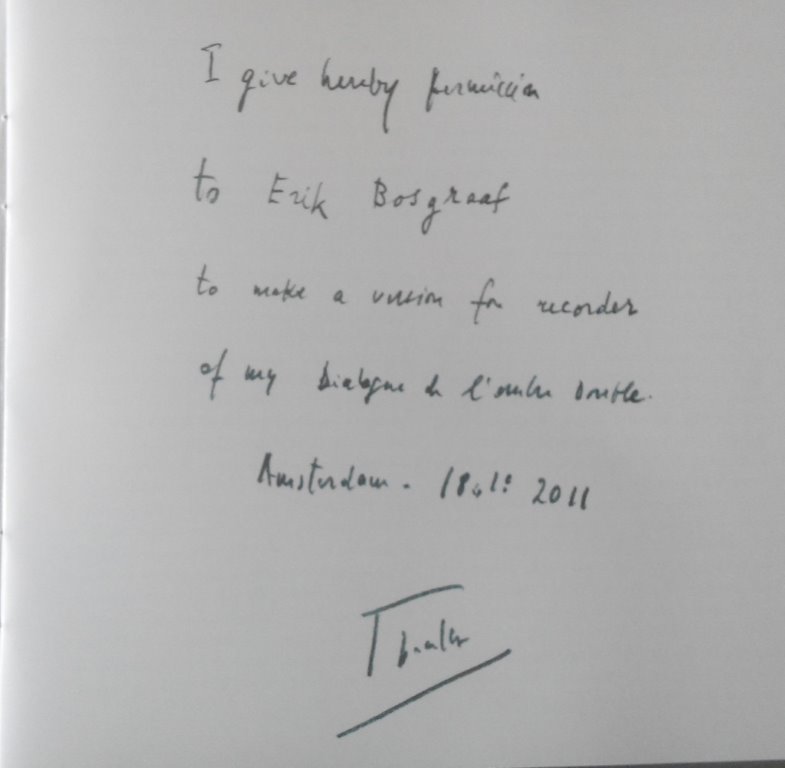 I give hereby permission
to Erik Bosgraaf
to make a version for recorder
of my Dialogue de l'ombre double.
Amsterdam. 2011